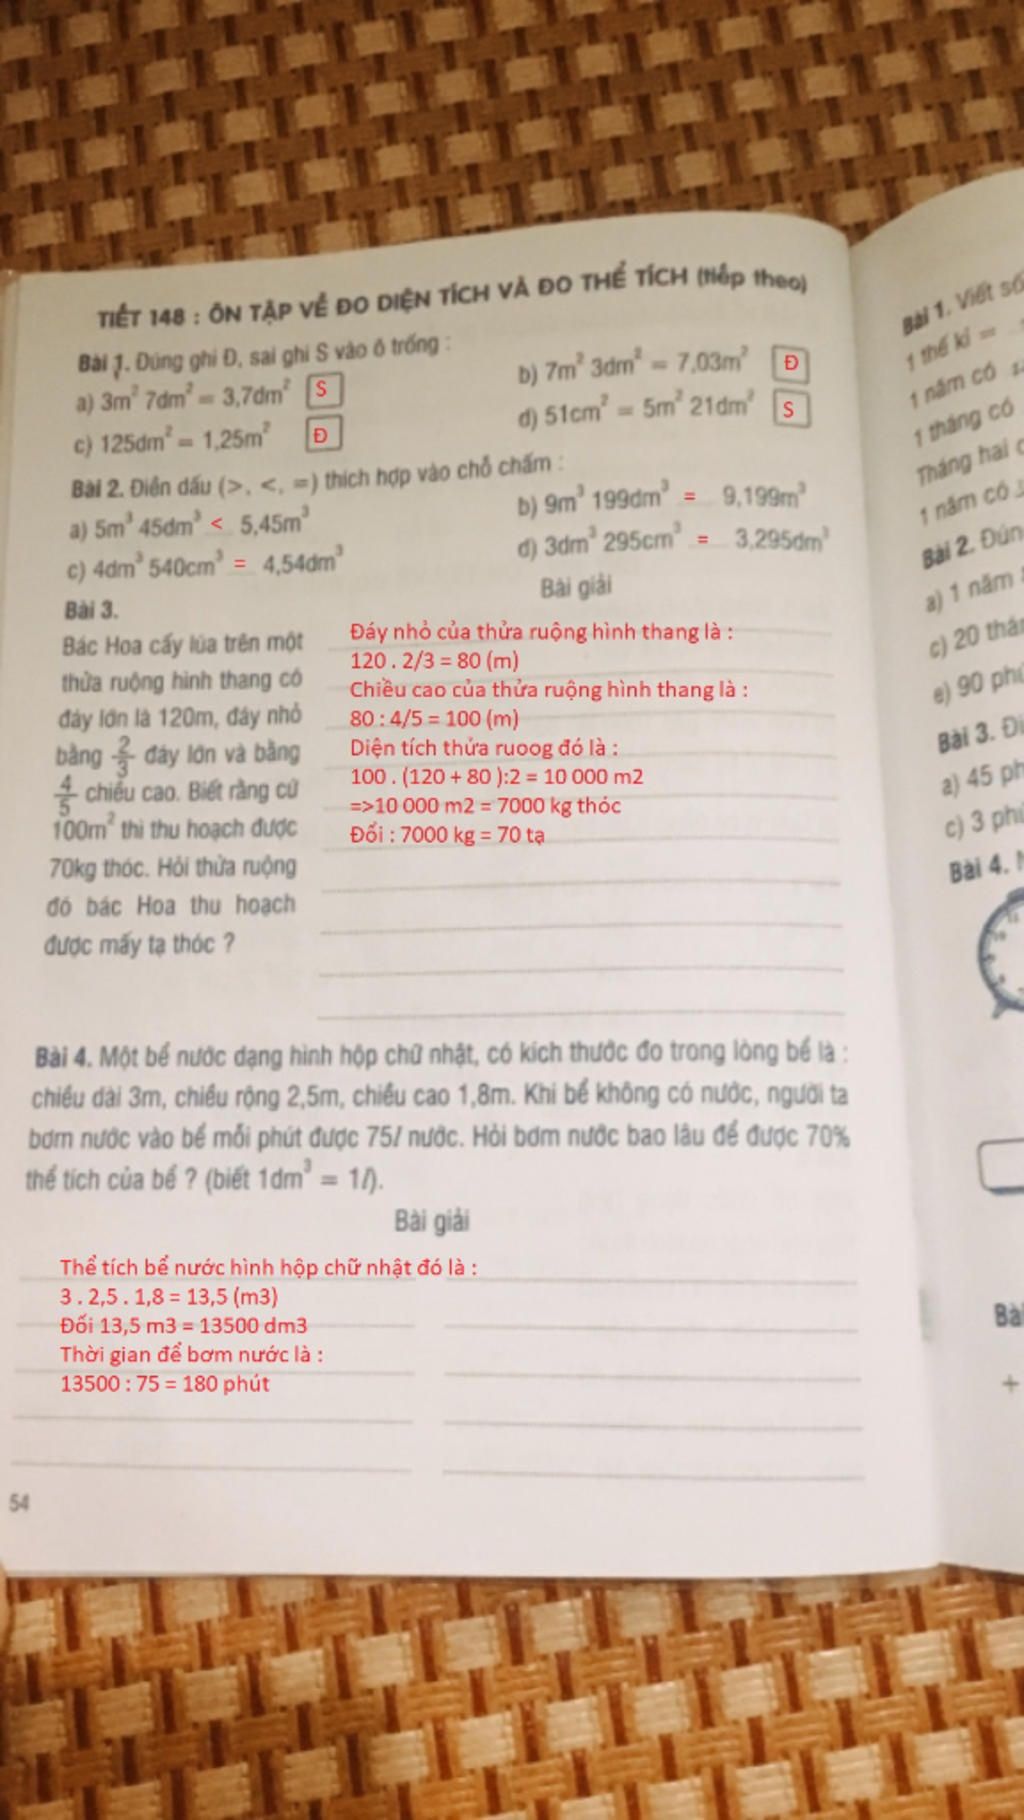 TIẾT 148 : ÔN TẬP VỀ ĐO DIỆN TÍCH VÀ ĐO THỂ TÍCH (tiếp theo)
Bài 1. Đúng ghi Đ, sai ghi S vào ô trống :
a) 3m² 7dm² = 3,7dm² S
b) 7m² 3dm² = 7,03m² Đ
c) 125dm² = 1,25m² Đ
d) 51cm² = 5m² 21dm² S
Bài 2. Điền dấu (>, <, =) thích hợp vào chỗ chấm :
a) 5m³ 45dm³ < 5,45m³
b) 9m³ 199dm³ = 9,199m³
c) 4dm³ 540cm³ = 4,54dm³
d) 3dm³ 295cm³ = 3,295dm³
Bài 3.
Bác Hoa cấy lúa trên một
thửa ruộng hình thang có
đáy lớn là 120m, đáy nhỏ
bằng 2/3 đáy lớn và bằng
4/5 chiều cao. Biết rằng cứ
100m² thì thu hoạch được
70kg thóc. Hỏi thửa ruộng
đó bác Hoa thu hoạch
được mấy tạ thóc ?
Bài giải
Đáy nhỏ của thửa ruộng hình thang là :
120 . 2/3 = 80 (m)
Chiều cao của thửa ruộng hình thang là :
80 : 4/5 = 100 (m)
Diện tích thửa ruoog đó là :
100 . (120 + 80 ):2 = 10 000 m2
=>10 000 m2 = 7000 kg thóc
Đổi : 7000 kg = 70 tạ
Bài 4. Một bể nước dạng hình hộp chữ nhật, có kích thước đo trong lòng bể là :
chiều dài 3m, chiều rộng 2,5m, chiều cao 1,8m. Khi bể không có nước, người ta
bơm nước vào bể mỗi phút được 75l nước. Hỏi bơm nước bao lâu để được 70%
thể tích của bể ? (biết 1dm³ = 1l).
Bài giải
Thể tích bể nước hình hộp chữ nhật đó là :
3 . 2,5 . 1,8 = 13,5 (m3)
Đối 13,5 m3 = 13500 dm3
Thời gian để bơm nước là :
13500 : 75 = 180 phút
54
Bài 1. Viết số
1 thế kỉ =
1 năm có
1 tháng có
Tháng hai
1 năm có
Bài 2. Đún
a) 1 năm
c) 20 thán
e) 90 phú
Bài 3. Đi
a) 45 ph
c) 3 phú
Bài 4.
Bà
+